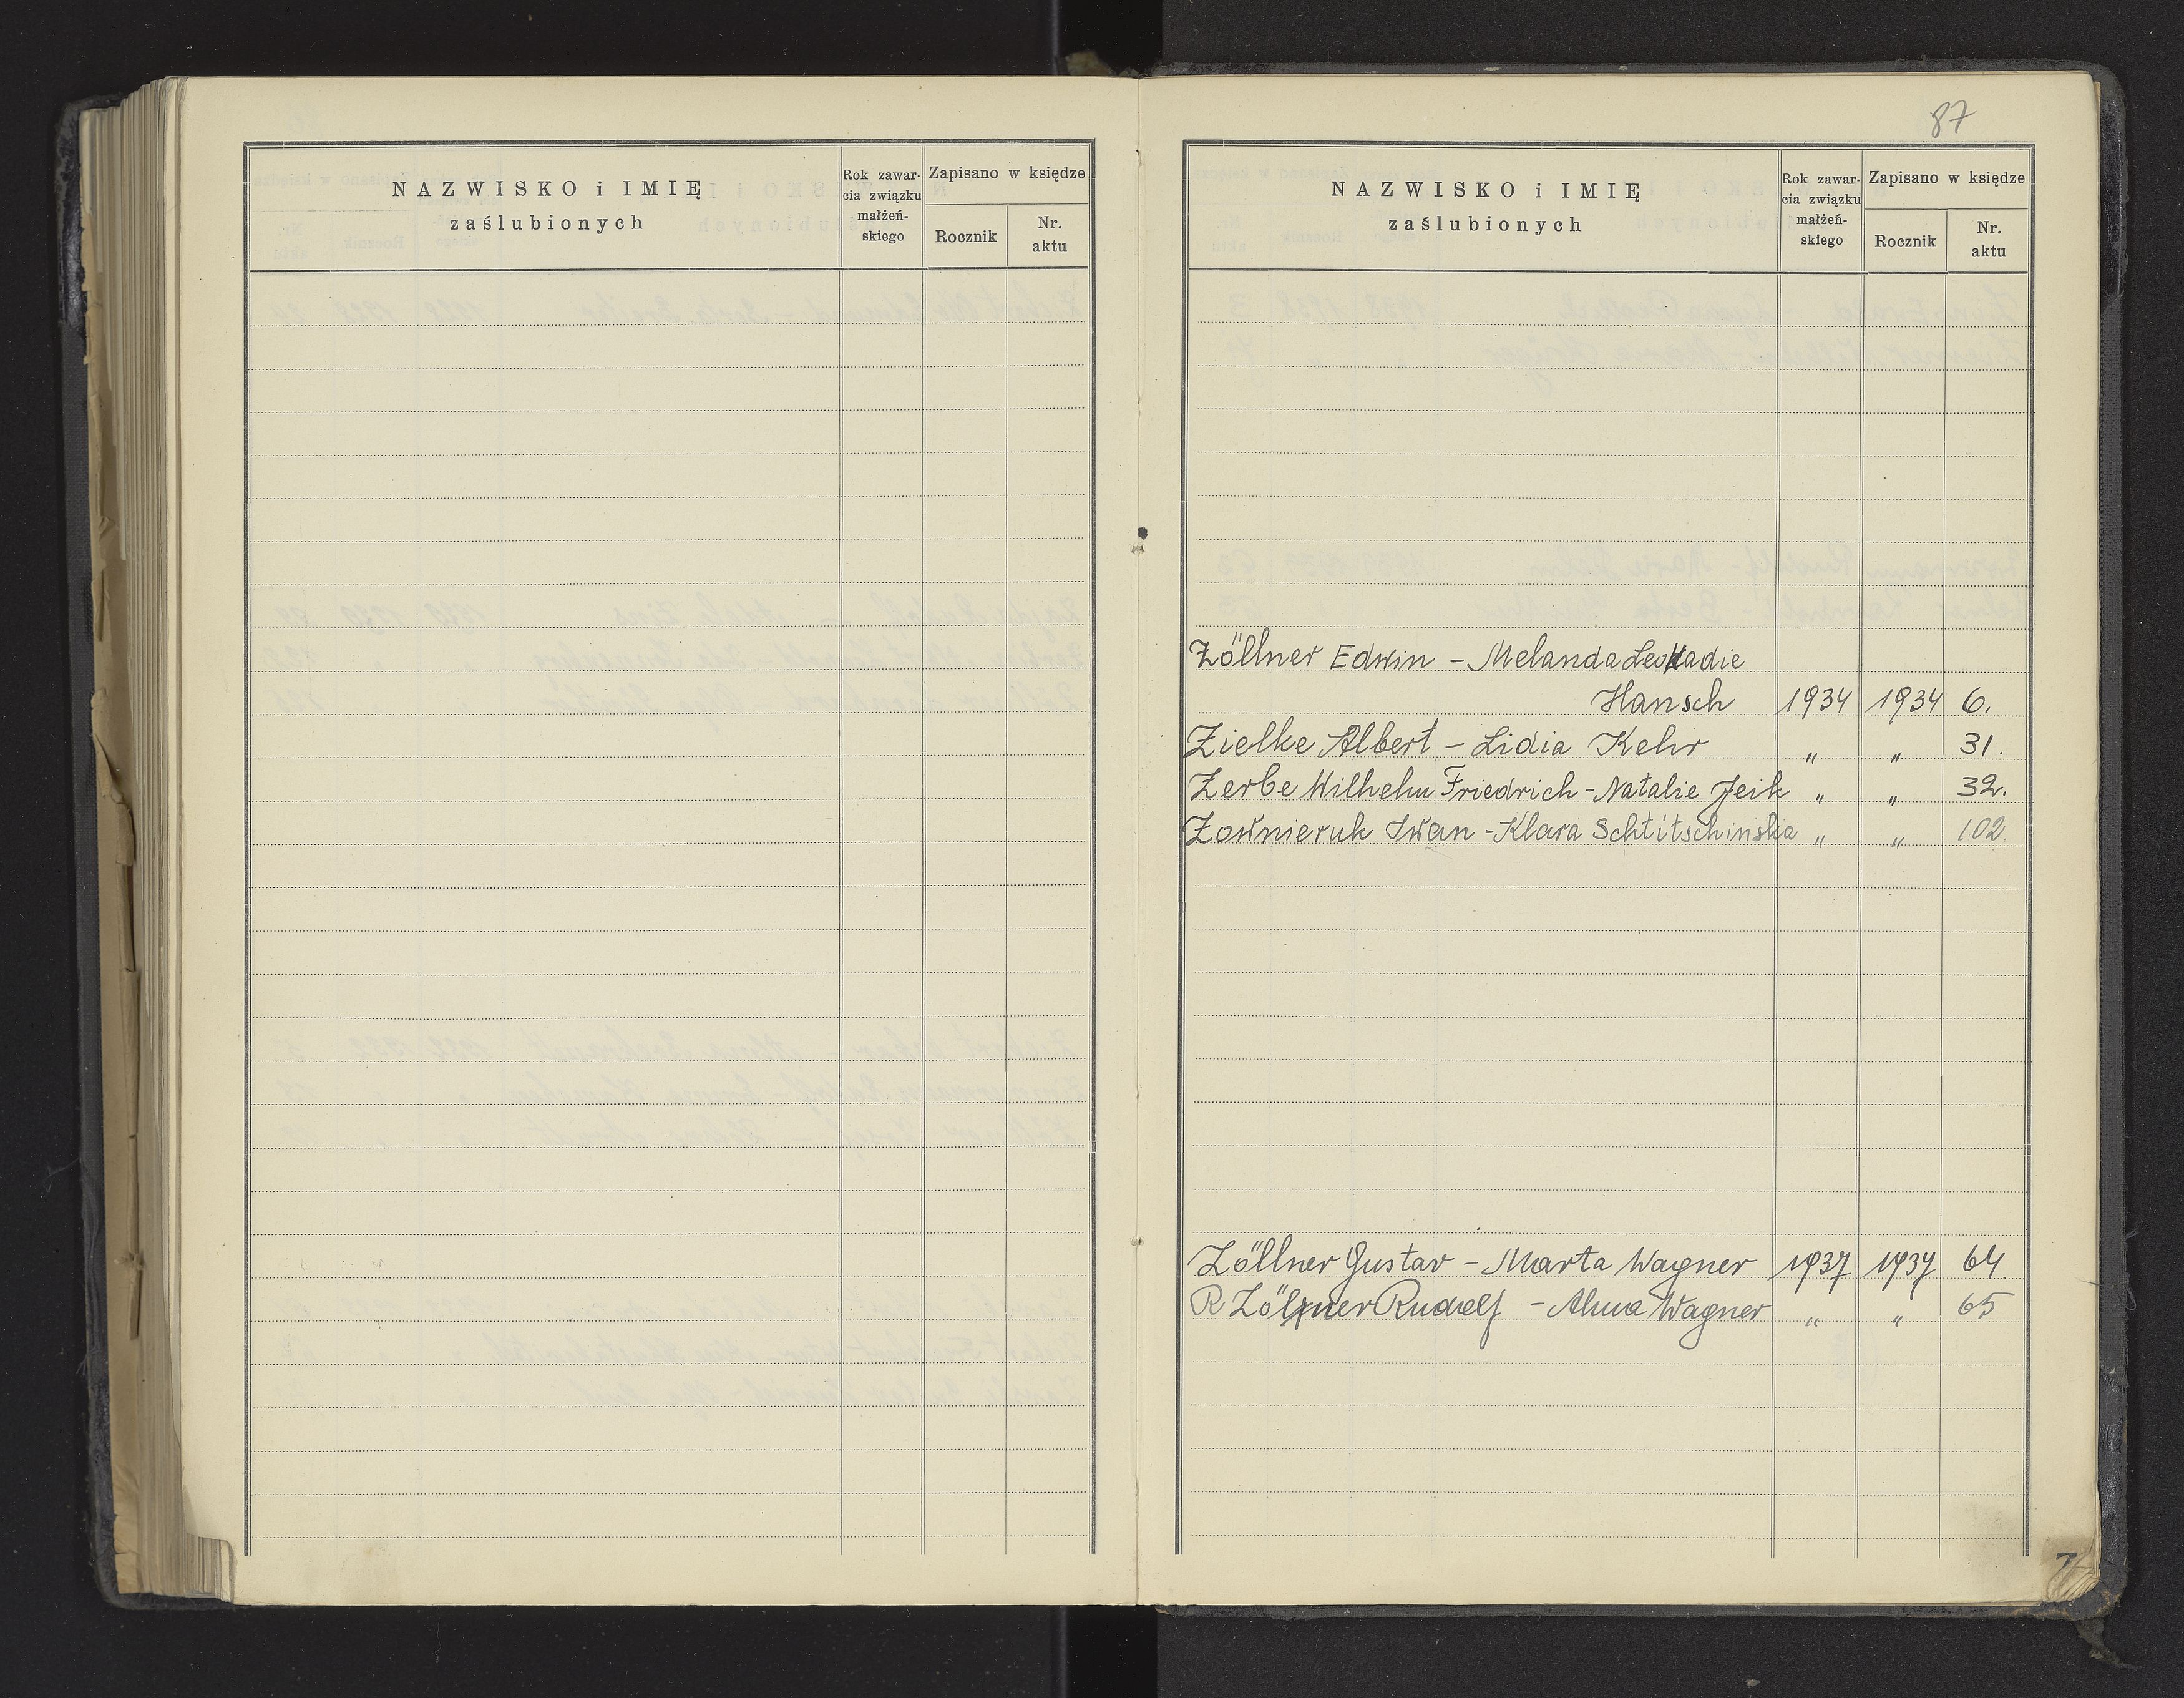 NAZWISKO i IMIĘ
zaślubionych
Rok zawar-
cia związku
małżeń-
skiego
Zapisano w księdze
Rocznik
Nr.
aktu
87
NAZWISKO i IMIĘ
zaślubionych
Rok zawar-
cia związku
małżeń-
skiego
Zapisano w księdze
Rocznik
Nr.
aktu
Zöllner Edwin - Melanda Leokadie
Hansch 1934 1934 6.
Zielke Albert - Lidia Kehr " " 31.
Zerbe Wilhelm Friedrich - Natalie Jeik " " 32.
Zownieruk Iwan - Klara Schtitschinska " " 102.
Zöllner Gustav - Marta Wagner 1937 1937 64
R Zöllner Rudolf - Alma Wagner " " 65
Z